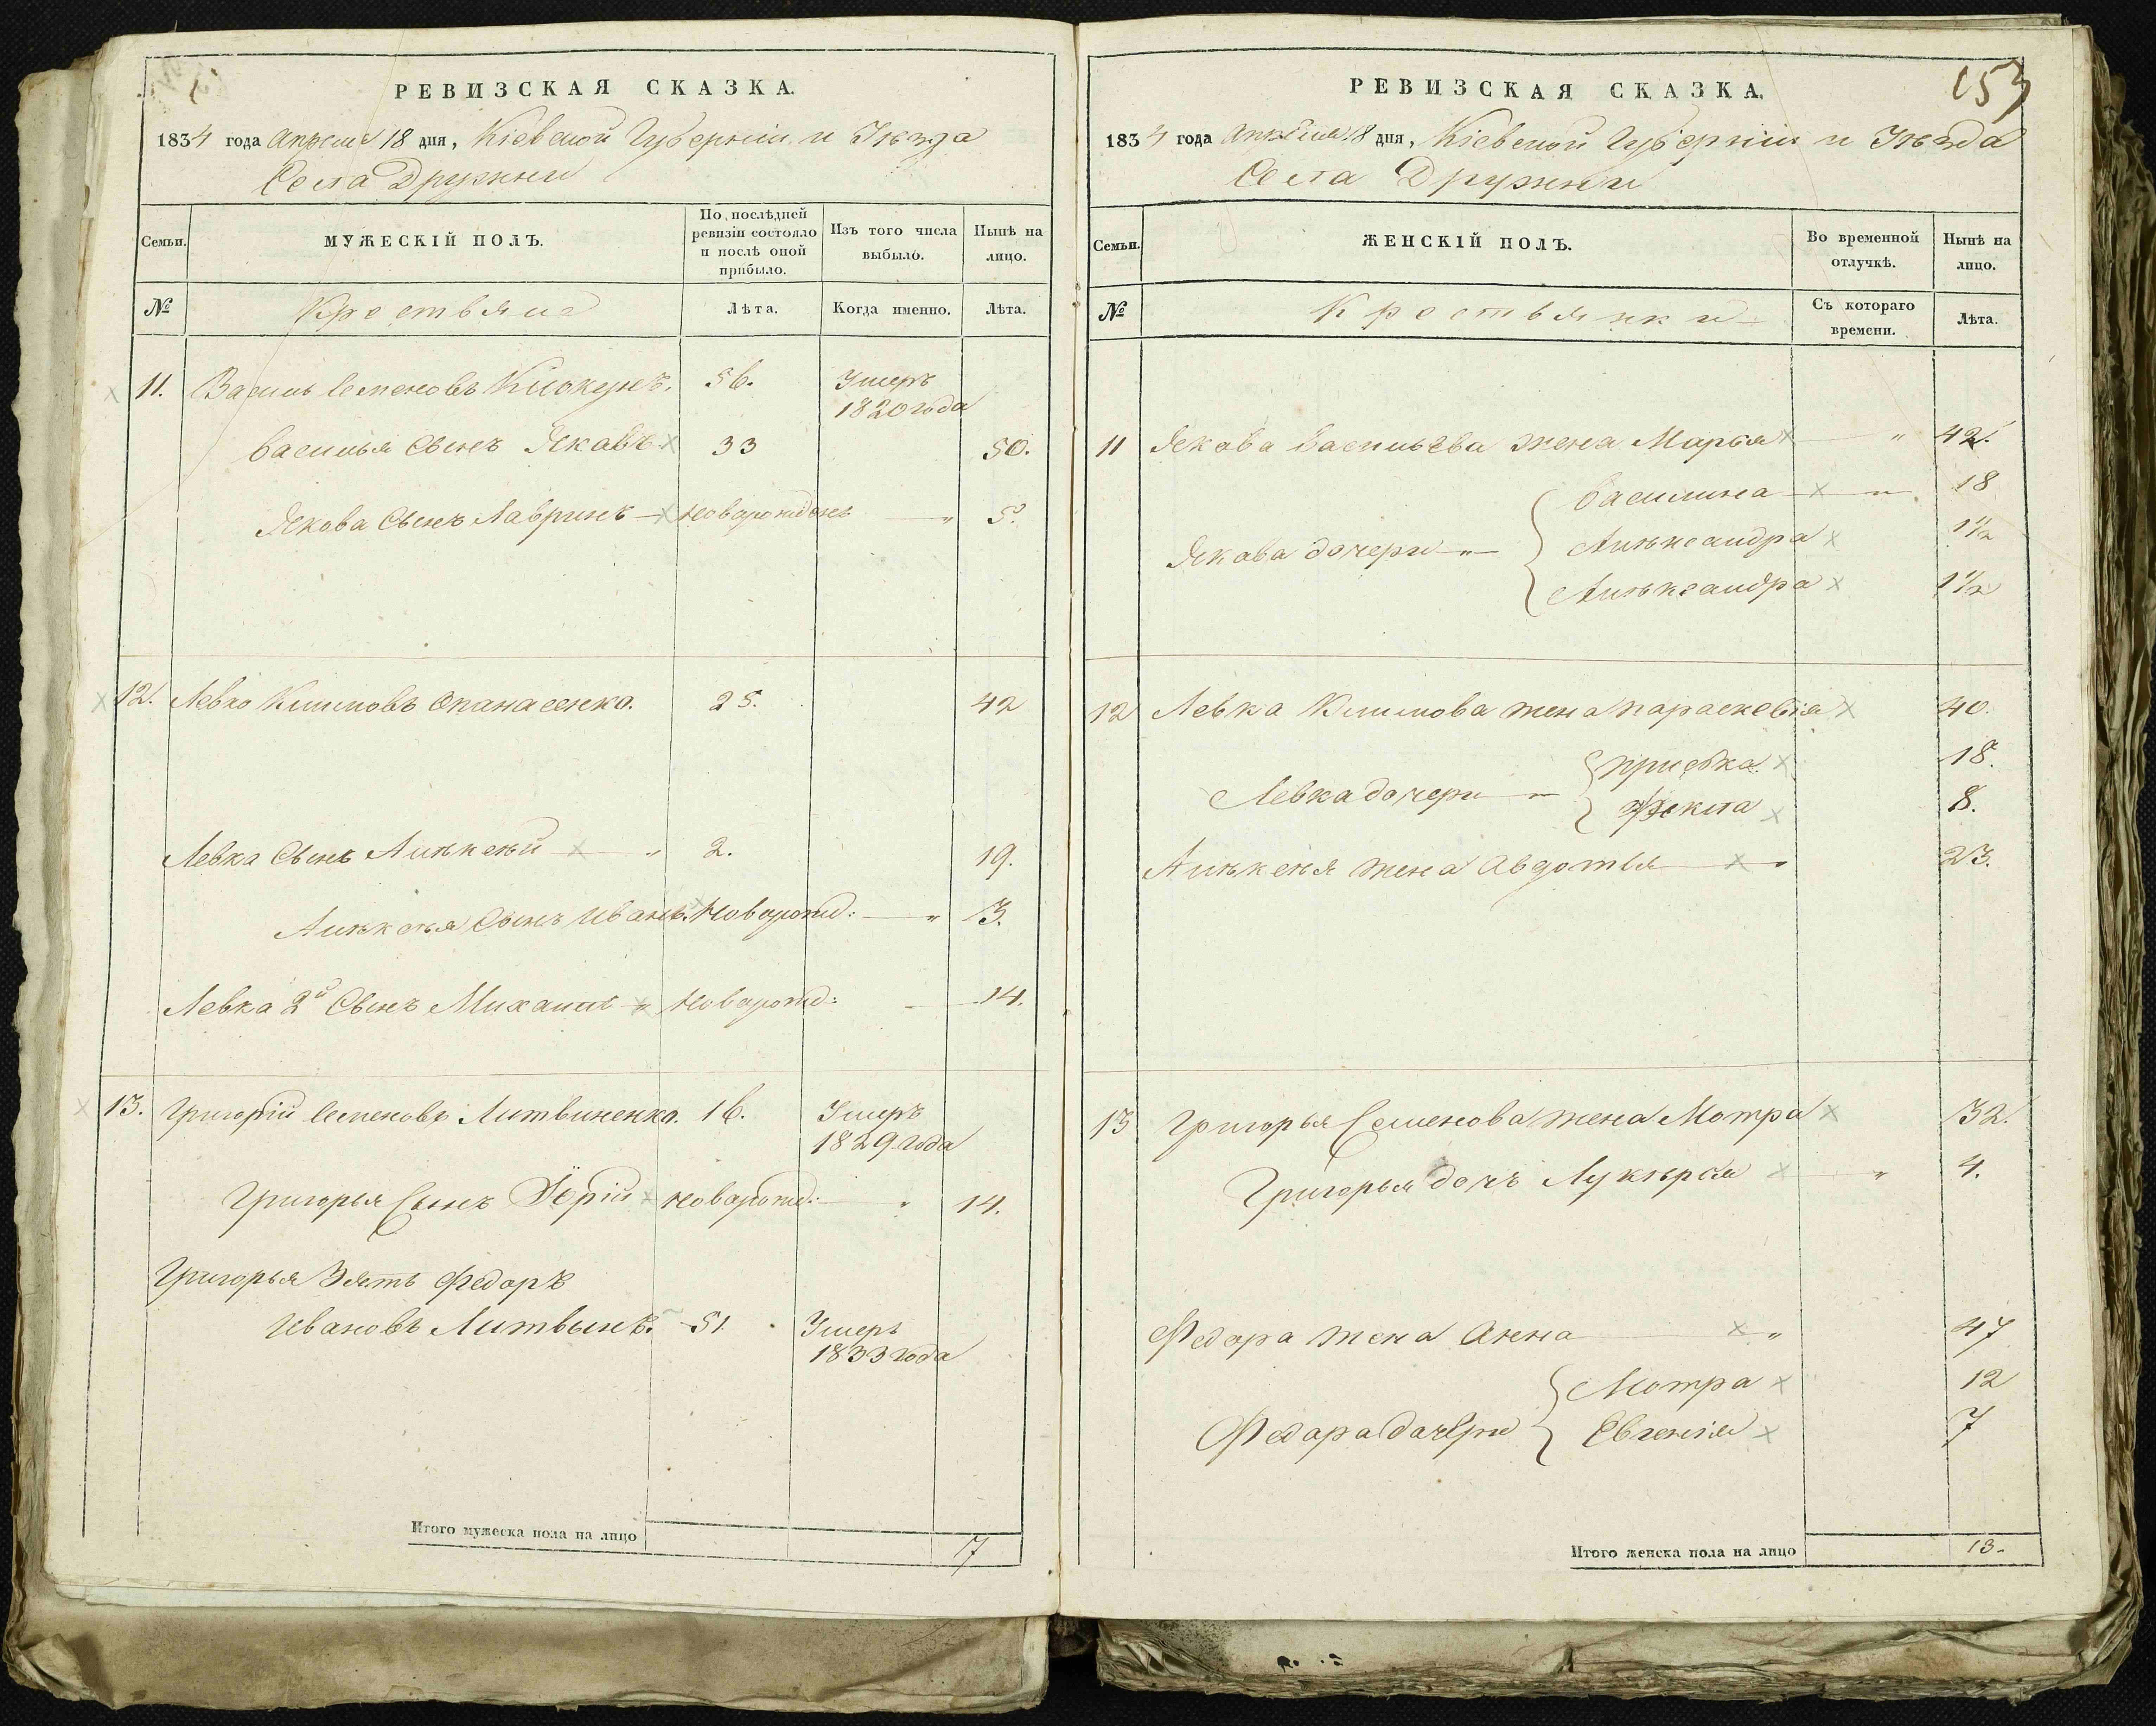 РЕВИЗСКАЯ СКАЗКА.
1834 года Апреля 18 дня, Кіевской Губерніи и Уѣзда
Села Дружни
Семьи.
МУЖЕСКІЙ ПОЛЪ.
По послѣдней ревизіи состояло и послѣ оной прибыло.
Изъ того числа выбыло.
Нынѣ на лицо.
№
Крестьяне
Лѣта.
Когда именно.
Лѣта.
11. Василь Семеновъ 56. Умеръ
1820 года
Василья Сынъ Яковъ 33 50.
Якова Сынъ Лавринъ — новорожденъ — " 5.
12. Левко Климовъ Опанасенко. 25. 42
Левка Сынъ Алѣксѣй — " 2. 19.
Алѣксѣя Сынъ Иванъ. Новорожд: — " 3.
Левка 2й Сынъ Михаилъ " Новорожд: — 14.
13. Григорій Семеновъ Литвиненко. 16. Умеръ
1829 года
Григорья Сынъ Юрій новорожд: — " 14.
Григорья Зять Федоръ
Ивановъ Литвынъ. 51. Умеръ
1833 года
Итого мужеска пола на лицо 7
153
РЕВИЗСКАЯ СКАЗКА.
1834 года Апрѣля 18 дня, Кіевской Губерніи и Уѣзда
Села Дружни
Семьи.
ЖЕНСКІЙ ПОЛЪ.
Во временной отлучкѣ.
Нынѣ на лицо.
№
Крестьянки
Съ котораго времени.
Лѣта.
11 Якова Васильева жена Марья — " 42.
Василина — " 18
Якова дочери — " — Алѣксандра 1 1/2
Алѣксандра 1 1/2
12 Левка Климова жена Параскевія 40.
Приська 18.
Левка дочери — Фекла 8.
Алѣксѣя жена Авдотья — " 23.
13 Григорья Семенова жена Мотра 32.
Григорья дочъ Лукѣрья — " 4.
Федора жена Анна " 47
Мотра 12
Федора дочери Евгенія 7
Итого женска пола на лицо 13.